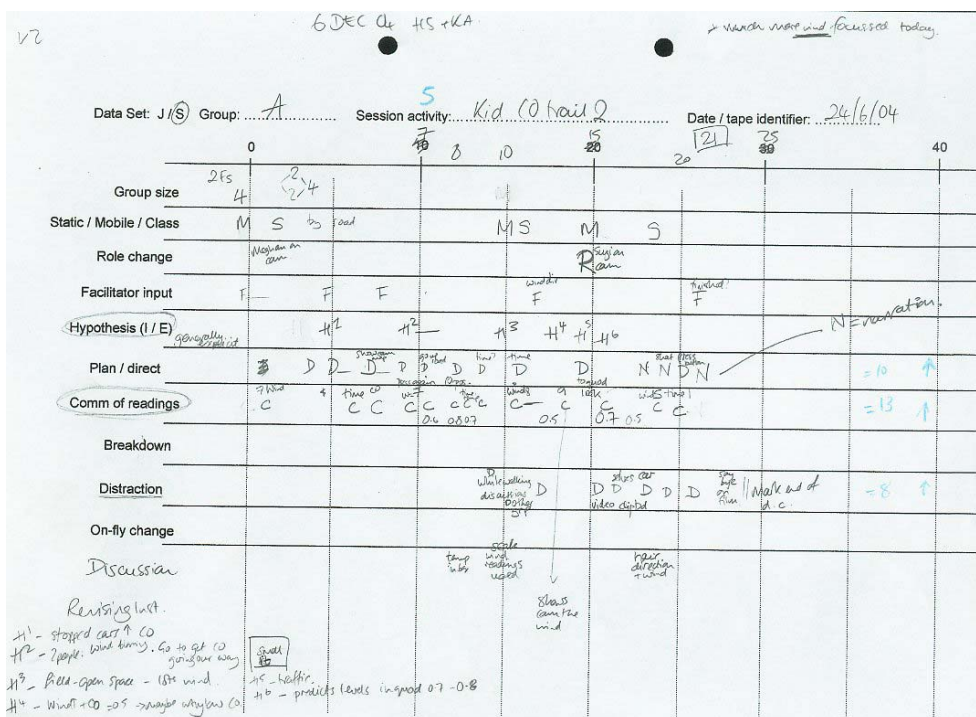 V2
6 DEC 04 HS + KA
much more wind focussed today.
5
Data Set: J / S Group: A Session activity: Kid CO trail 2 Date / tape identifier: 24/6/04
0 7 8 10 15 20 21 25 40
Group size 2Fs 4 2 2 4
Static / Mobile / Class M S by road M S M S
Role change Meghan on cam R cam
Facilitator input F F F wind dir F finished? F
Hypothesis (I / E) generally explicit H1 H2 H3 H4 H5 H6
N = narration.
Plan / direct D D D D D D D time D D N N D N = 10 ↑
Comm of readings 7 wind C 4 time CO C C C C C C C wind C C C wind C time C = 13 ↑
0.6 0.5 0.7 0.5
Breakdown
Distraction D while walking discussions other D D D D D D Mark end of d.c. = 8 ↑
video clipbd
On-fly change
Discussion temp scale wind readings used hair direction + wind
shows cam the wind
Revising last.
H1 - stopped cars ↑ CO
H2 - 2 people. wind turny. Go to get CO going our way
H3 - field - open space - lots wind.
H4 - Winds + CO = 0.5 → maybe why low CO
H5 - traffic.
H6 - predicts levels in quad 0.7 - 0.8